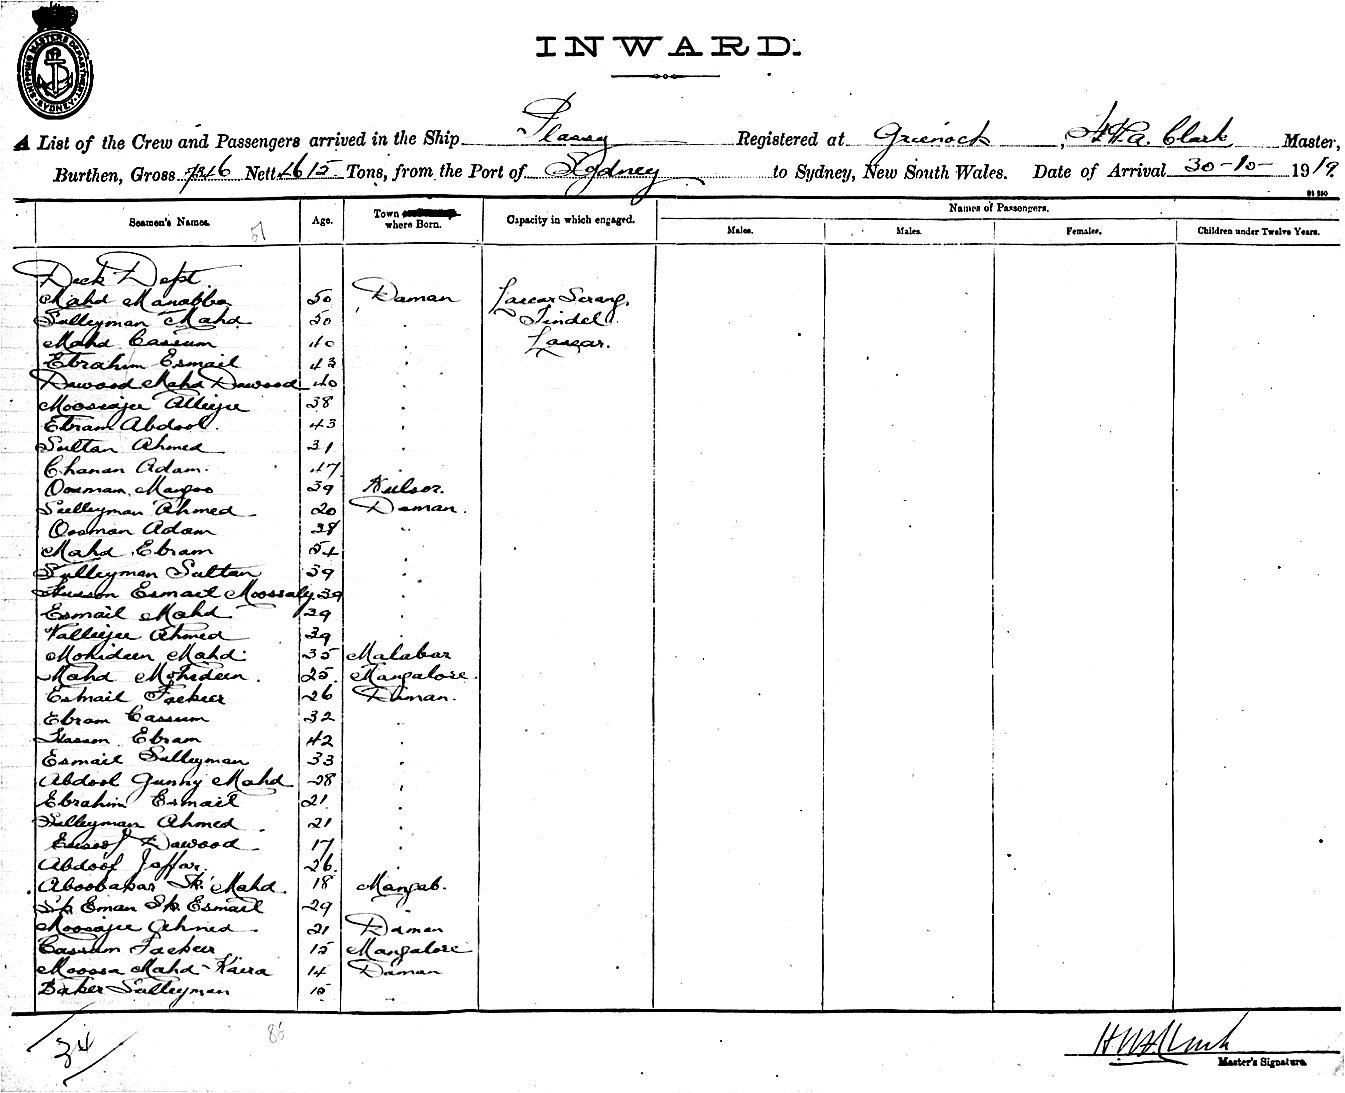 SHIPPING MASTERS DEPARTMENT, SYDNEY
INWARD.
A List of the Crew and Passengers arrived in the Ship Plassy Registered at Greenock, H.W.A. Clark Master,
Burthen, Gross 7346 Nett 4615 Tons, from the Port of Sydney to Sydney, New South Wales. Date of Arrival 30-10- 1919
Seamen's Names. Age. Town where Born. Capacity in which engaged. Names of Passengers.
Males. Males. Females. Children under Twelve Years.
51
Deck Dept.
Mahd Manabba 50 Daman Lascar Serang.
Sulleyman Mahd 50 " Tindel.
Mahd Cassum 40 " Lascar.
Ebrahim Esmail 43 "
Dawood Mahd Dawood 40 "
Moosajee Alleejee 38 "
Ebram Abdool. 43 "
Sultan Ahmed 31 "
Chanan Adam. 47 "
Oosman Mangoo 39 Bulsor.
Sulleyman Ahmed 20 Daman.
Oosman Adam 38 "
Mahd Ebram 54 "
Sulleyman Sultan 39 "
Husson Esmail Moossaly 39 "
Esmail Mahd 39 "
Valleejee Ahmed 39 "
Mohideen Mahd. 35 Malabar
Mahd Mohideen. 25 Mangalore.
Esmail Fackeer 26 Daman.
Ebram Cassum 32 "
Hassen Ebram 42 "
Esmail Sulleyman 33 "
Abdool Gunny Mahd 28 "
Ebrahim Esmail 21 "
Sulleyman Ahmed 21 "
Eusoof Dawood 17 "
Abdool Jaffar. 26 "
Aboobakar Sk. Mahd 18 Mangab.
Sk Eman Sk. Esmail 29 "
Moosajee Ahmed 21 Daman
Cassum Fackeer 15 Mangalore
Moossa Mahd Kaira 14 Daman
Baker Sulleyman 15 "
34
85
HWAClark
Master's Signature.